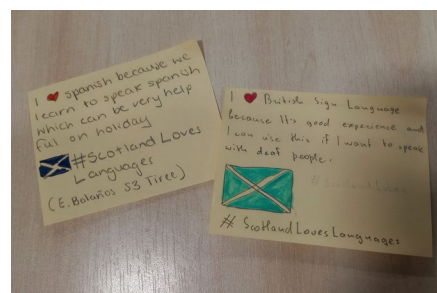 I ❤ spanish because we
learn to speak spanish
which can be very help
ful on holiday
#Scotland Loves
Languages
(E. Bolaños S3 Tiree)
I ❤ British Sign Language
because It's good experience and
I can use this if I want to speak
with deaf people.
# Scotland Loves Languages